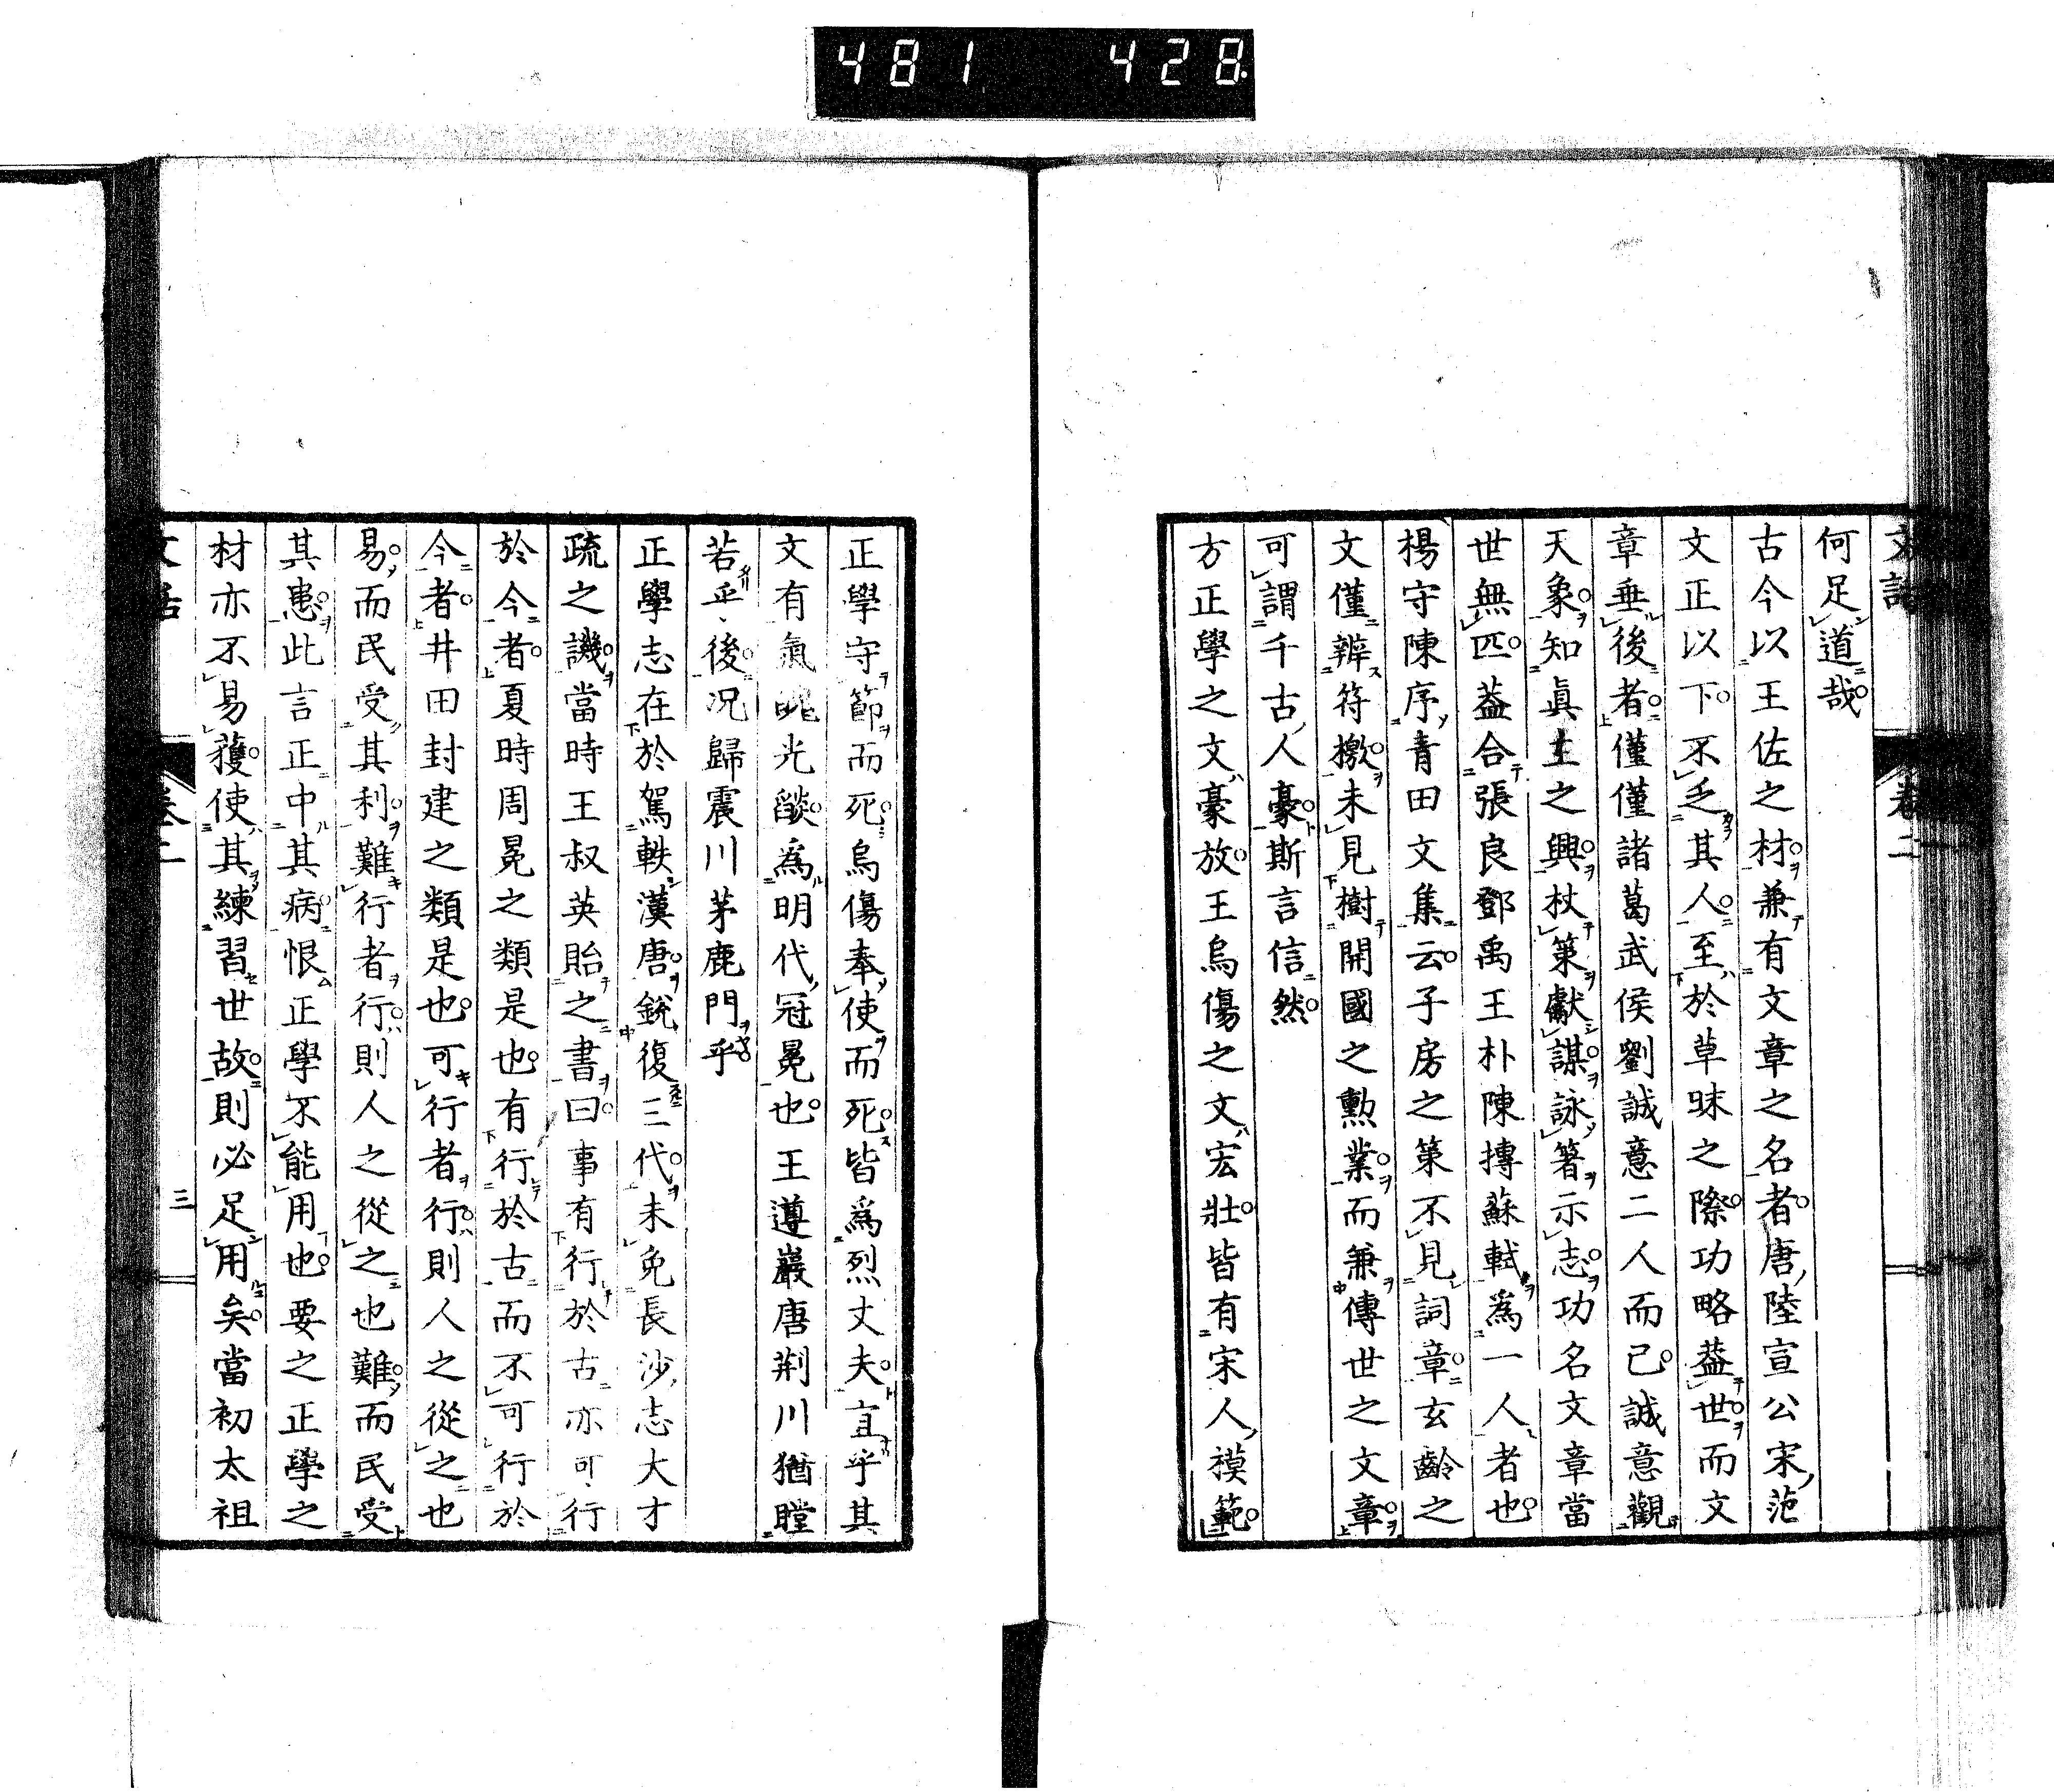 481 428
文話 卷二
何足道哉
古今以王佐之材兼有文章之名者唐陸宣公宋范
文正以下不乏其人至於草昧之際功略蓋世而文
章垂後者僅僅諸葛武侯劉誠意二人而已誠意觀
天象知眞主之興杖策獻謀詠箸示志功名文章當
世無匹蓋合張良鄧禹王朴陳摶蘇軾爲一人者也
楊守陳序青田文集云子房之策不見詞章玄齡之
文僅辨符檄未見樹開國之勲業而兼傳世之文章
可謂千古人豪斯言信然
方正學之文豪放王烏傷之文宏壯皆有宋人模範
正學守節而死烏傷奉使而死皆爲烈丈夫宜乎其
文有氣魄光燄爲明代冠冕也王遵巖唐荆川猶瞠
若乎後况歸震川茅鹿門乎
正學志在於駕軼漢唐銳復三代未免長沙志大才
疏之譏當時王叔英貽之書曰事有行於古亦可行
於今者夏時周冕之類是也有行於古而不可行於
今者井田封建之類是也可行者行則人之從之也
易而民受其利難行者行則人之從之也難而民受
其患此言正中其病恨正學不能用也要之正學之
材亦不易獲使其練習世故則必足用矣當初太祖
文話 卷二 三